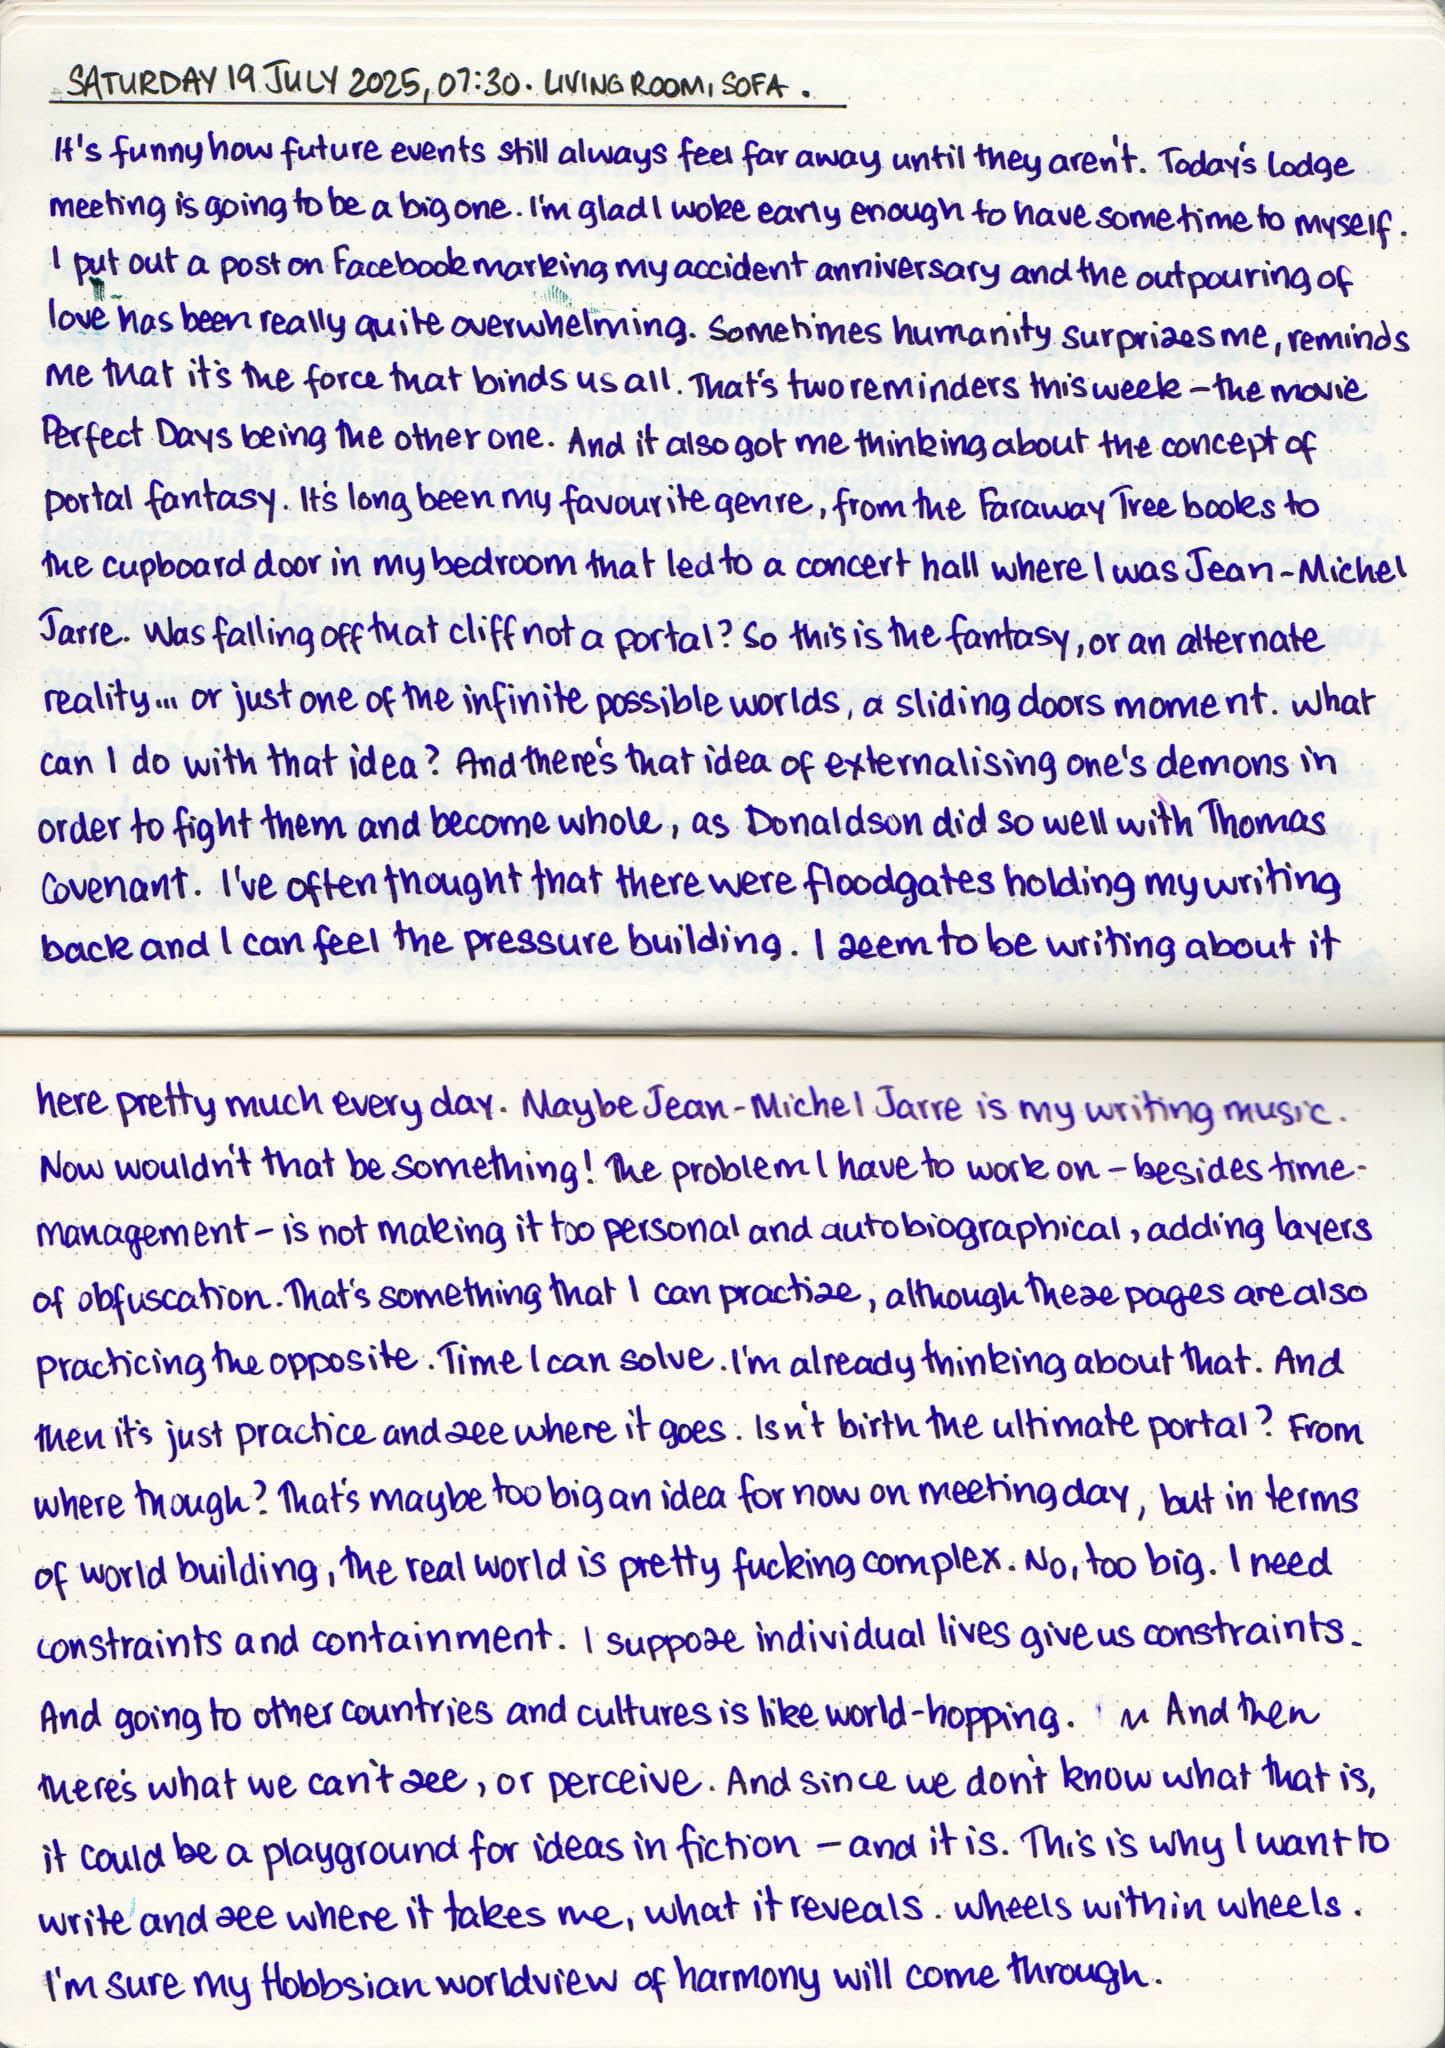 SATURDAY 19 JULY 2025, 07:30. LIVING ROOM, SOFA.
It's funny how future events still always feel far away until they aren't. Today's Lodge
meeting is going to be a big one. I'm glad I woke early enough to have some time to myself.
I put out a post on Facebook marking my accident anniversary and the outpouring of
love has been really quite overwhelming. Sometimes humanity surprizes me, reminds
me that it's the force that binds us all. That's two reminders this week – the movie
Perfect Days being the other one. And it also got me thinking about the concept of
portal fantasy. It's long been my favourite genre, from the Faraway Tree books to
the cupboard door in my bedroom that led to a concert hall where I was Jean-Michel
Jarre. Was falling off that cliff not a portal? So this is the fantasy, or an alternate
reality... or just one of the infinite possible worlds, a sliding doors moment. What
can I do with that idea? And there's that idea of externalising one's demons in
order to fight them and become whole, as Donaldson did so well with Thomas
Covenant. I've often thought that there were floodgates holding my writing
back and I can feel the pressure building. I seem to be writing about it
here pretty much every day. Maybe Jean-Michel Jarre is my writing music.
Now wouldn't that be something! The problem I have to work on – besides time-
management – is not making it too personal and autobiographical, adding layers
of obfuscation. That's something that I can practise, although these pages are also
practicing the opposite. Time I can solve. I'm already thinking about that. And
then it's just practice and see where it goes. Isn't birth the ultimate portal? From
where though? That's maybe too big an idea for now on meeting day, but in terms
of world building, the real world is pretty fucking complex. No, too big. I need
constraints and containment. I suppose individual lives give us constraints.
And going to other countries and cultures is like world-hopping. And then
there's what we can't see, or perceive. And since we don't know what that is,
it could be a playground for ideas in fiction – and it is. This is why I want to
write and see where it takes me, what it reveals. Wheels within wheels.
I'm sure my Hobbsian worldview of harmony will come through.